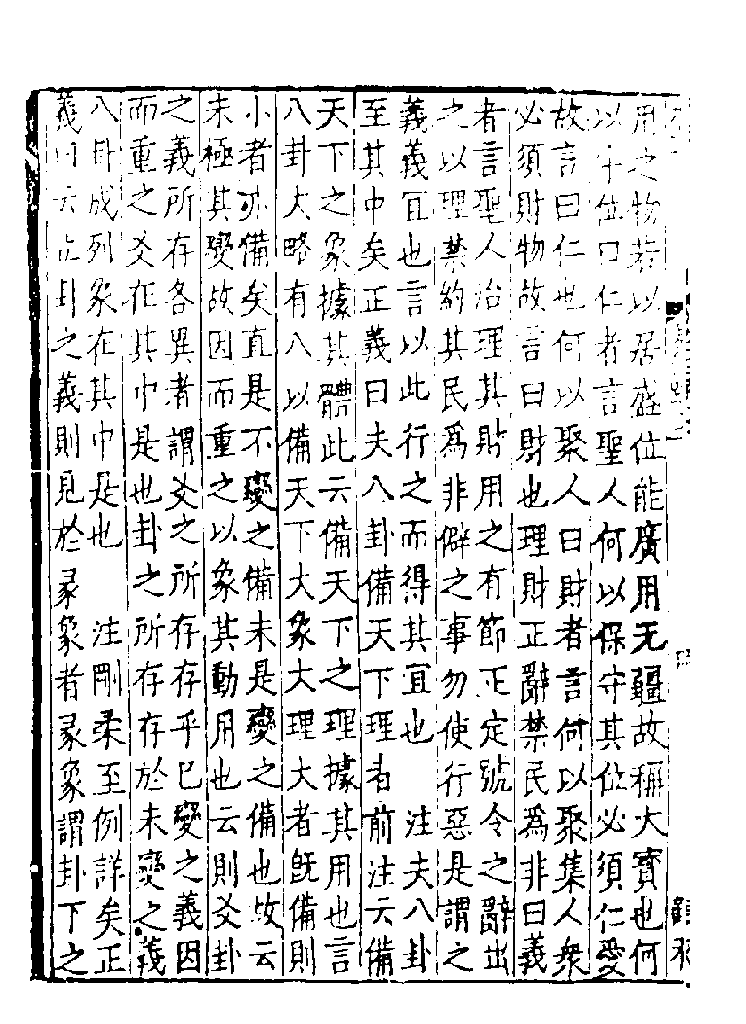 用之物若以居盛位能廣用无疆故稱大寶也何
以守位曰仁者言聖人何以保守其位必須仁愛
故言曰仁也何以聚人曰財者言何以聚集人衆
必須財物故言曰財也理財正辭禁民爲非曰義
者言聖人治理其財用之有節正定號令之辭出
之以理禁約其民爲非僻之事勿使行惡是謂之
義義宜也言以此行之而得其宜也 注夫八卦
至其中矣正義曰夫八卦備天下理者前注云備
天下之象據其體此云備天下之理據其用也言
八卦大略有八以備天下大象大理大者旣備則
小者亦備矣直是不變之備未是變之備也故云
未極其變故因而重之以象其動用也云則爻卦
之義所存各異者謂爻之所存存乎已變之義因
而重之爻在其中是也卦之所存存於未變之義
八卦成列象在其中是也 注剛柔至例詳矣正
義曰云立卦之義則見於彖象者彖象謂卦下之